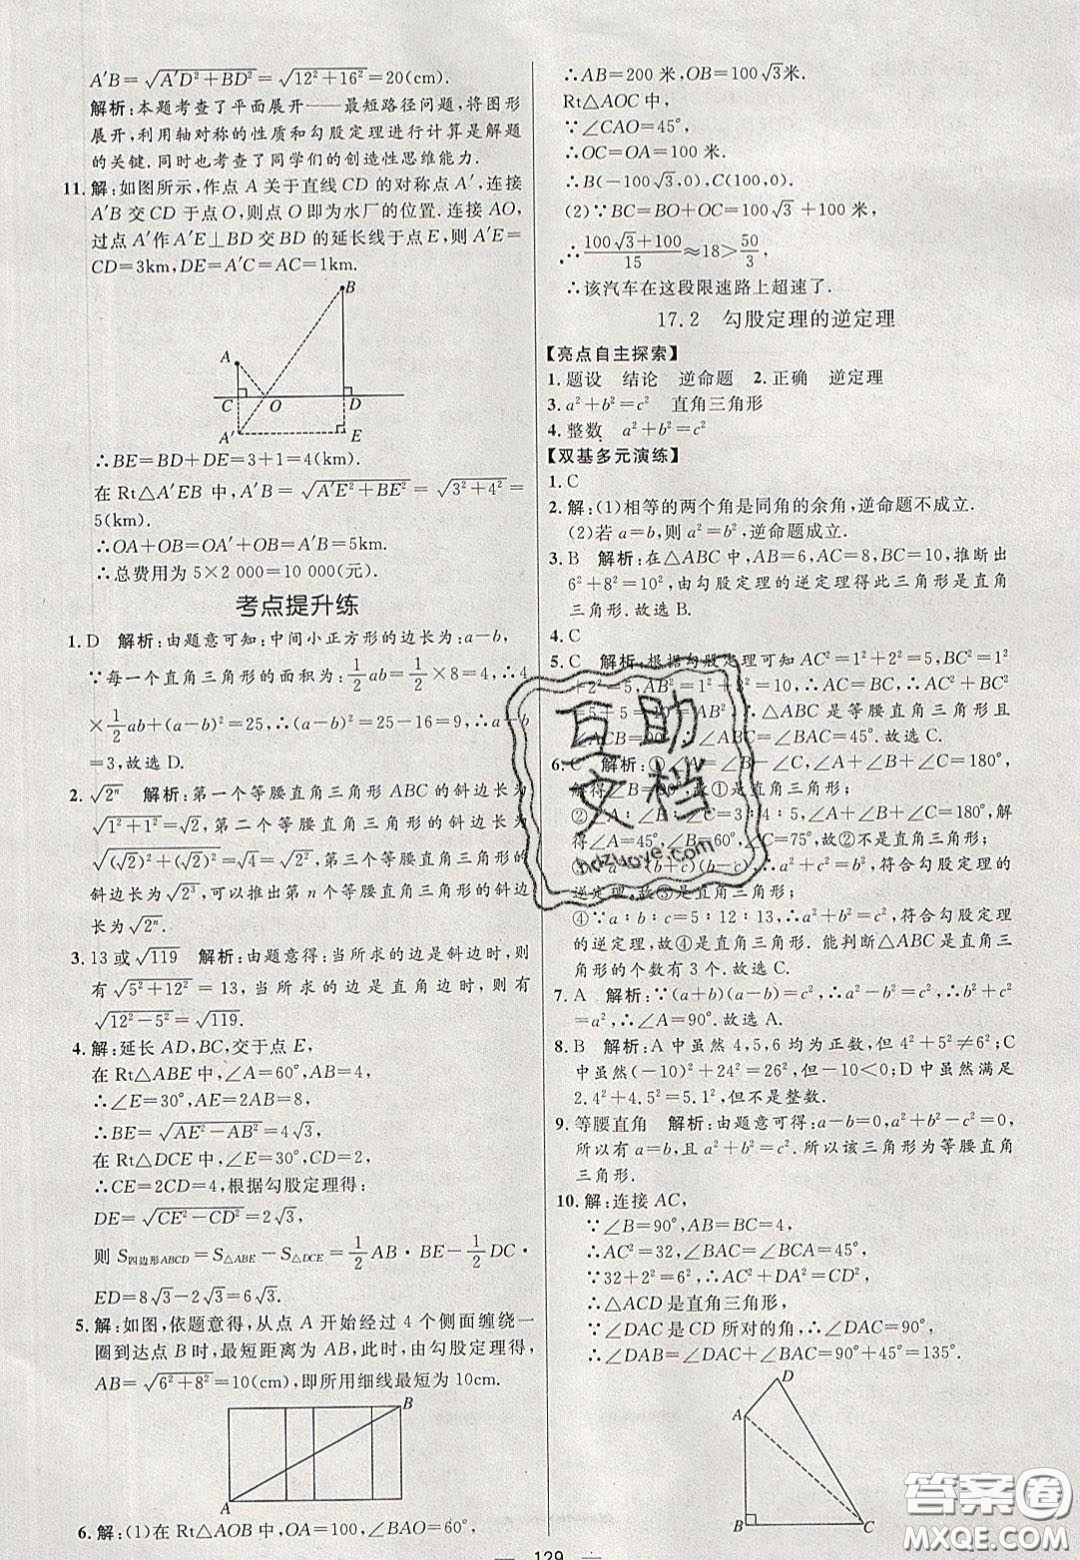 A′B=√(A′D²+BD²)=√(12²+16²)=20(cm).
解析:本题考查了平面展开——最短路径问题,将图形
展开,利用轴对称的性质和勾股定理进行计算是解题
的关键.同时也考查了同学们的创造性思维能力.
11.解:如图所示,作点 A 关于直线 CD 的对称点 A′,连接
A′B 交 CD 于点 O,则点 O 即为水厂的位置.连接 AO,
过点 A′作 A′E⊥BD 交 BD 的延长线于点 E,则 A′E=
CD=3km,DE=A′C=AC=1km.
B
A
C O D
A′ E
∴BE=BD+DE=3+1=4(km).
在 Rt△A′EB 中,A′B=√(A′E²+BE²)=√(3²+4²)=
5(km).
∴OA+OB=OA′+OB=A′B=5km.
∴总费用为 5×2 000=10 000(元).
考点提升练
1.D 解析:由题意可知:中间小正方形的边长为:a−b,
∵每一个直角三角形的面积为:1/2 ab=1/2×8=4,∴4
×1/2 ab+(a−b)²=25,∴(a−b)²=25−16=9,∴a−b
=3,故选 D.
2.√(2ⁿ) 解析:第一个等腰直角三角形 ABC 的斜边长为
√(1²+1²)=√2,第二个等腰直角三角形的斜边长为
√((√2)²+(√2)²)=√4=√(2²),第三个等腰直角三角形的
斜边长为√(2³),可以推出第 n 个等腰直角三角形的斜边
长为√(2ⁿ).
3.13 或√119 解析:由题意得:当所求的边是斜边时,则
有√(5²+12²)=13,当所求的边是直角边时,则有
√(12²−5²)=√119.
4.解:延长 AD,BC,交于点 E,
在 Rt△ABE 中,∠A=60°,AB=4,
∴∠E=30°,AE=2AB=8,
∴BE=√(AE²−AB²)=4√3,
在 Rt△DCE 中,∠E=30°,CD=2,
∴CE=2CD=4,根据勾股定理得:
DE=√(CE²−CD²)=2√3,
则 S四边形ABCD=S△ABE−S△DCE=1/2 AB·BE−1/2 DC·
ED=8√3−2√3=6√3.
5.解:如图,依题意得,从点 A 开始经过 4 个侧面缠绕一
圈到达点 B 时,最短距离为 AB,此时,由勾股定理得,
AB=√(6²+8²)=10(cm),即所用细线最短为 10cm.
B
A
6.解:(1)在 Rt△AOB 中,OA=100,∠BAO=60°,
∴AB=200 米,OB=100√3米.
Rt△AOC 中,
∵∠CAO=45°,
∴OC=OA=100 米.
∴B(−100√3,0),C(100,0).
(2)∵BC=BO+OC=100√3+100,
∴(100√3+100)/15≈18>50/3,
∴该汽车在这段限速路上超速了.
17.2 勾股定理的逆定理
【亮点自主探索】
1.题设 结论 逆命题 2.正确 逆定理
3.a²+b²=c² 直角三角形
4.整数 a²+b²=c²
【双基多元演练】
1.C
2.解:(1)相等的两个角是同角的余角,逆命题不成立.
(2)若 a=b,则 a²=b²,逆命题成立.
3.B 解析:在△ABC 中,AB=6,AC=8,BC=10,推断出
6²+8²=10²,由勾股定理的逆定理得此三角形是直角
三角形.故选 B.
4.C
5.C 解析:根据勾股定理可知 AC²=1²+2²=5,BC²=1²
+2²=5,AB²=1²+3²=10,∴AC=BC,AC²+BC²
=5+5=10=AB²,∴△ABC 是等腰直角三角形且
∠ACB=90°,∴∠ABC=∠BAC=45°.故选 C.
6. 解析:①∠A=∠B−∠C,∠A+∠B+∠C=180°,
解得∠B=90°,故①是直角三角形;
②∠A∶∠B∶∠C=3∶4∶5,∠A+∠B+∠C=180°,解
得∠A=45°,∠B=60°,∠C=75°,故②不是直角三角形;
③a²=(b+c)(b−c),∴a²+c²=b²,符合勾股定理的
逆定理,故③是直角三角形;
④∵a∶b∶c=5∶12∶13,∴a²+b²=c²,符合勾股定理
的逆定理,故④是直角三角形. 能判断△ABC 是直角三
角形的个数有 3 个.故选 C.
7.A 解析:∵(a+b)(a−b)=c²,∴a²−b²=c²,∴b²+c²
=a²,∴∠A=90°.故选 A.
8.B 解析:A 中虽然 4,5,6 均为正数,但 4²+5²≠6²;C
中虽然(−10)²+24²=26²,但−10<0;D 中虽然满足
2.4²+4.5²=5.1²,但不是整数.
9.等腰直角 解析:由题意可得:a−b=0,a²+b²−c²=0,
所以有 a=b,且 a²+b²=c².所以该三角形为等腰直角
三角形.
10.解:连接 AC,
∵∠B=90°,AB=BC=4,
∴AC²=32,∠BAC=∠BCA=45°,
∵32+2²=6²,∴AC²+DA²=CD²,
∴△DAC 是直角三角形,
∵∠DAC 是 CD 所对的角,∴∠DAC=90°,
∴∠DAB=∠DAC+∠BAC=90°+45°=135°.
D
A
B C
129
互助
文档
hdzuoye.com
答案圈
MXQE.COM